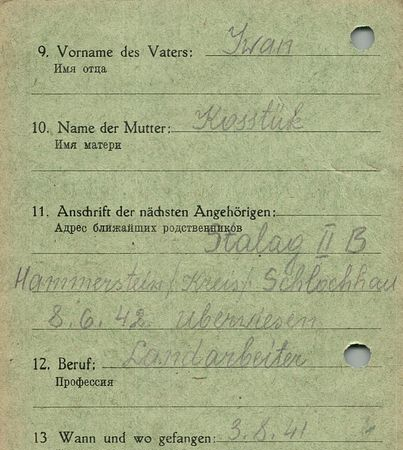 9. Vorname des Vaters: Iwan
Имя отца
10. Name der Mutter: Kosstük
Имя матери
11. Anschrift der nächsten Angehörigen:
Адрес ближайших родственников
Stalag II B
Hammerstein/Kreis/Schlochhau
8.6.42 überwiesen
12. Beruf: Landarbeiter
Профессия
13 Wann und wo gefangen: 3.8.41